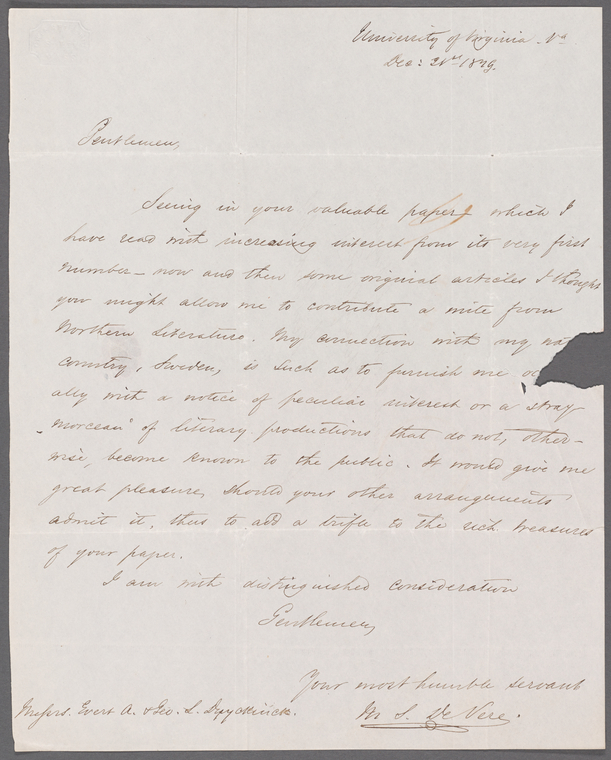 University of Virginia. Va
Dec: 21st 1849.
Gentlemen,
Seeing in your valuable paper, which I
have read with increasing interest from its very first
number – now and then some original articles I thought
you might allow me to contribute a mite from
Northern Literature. My connection with my nat
country, Sweden, is such as to furnish me oc
ally with a notice of peculiar interest or a stray
„morceau" of literary productions that do not, other-
wise, become known to the public. It would give me
great pleasure, should your other arrangements
admit it, thus to add a trifle to the rich treasures
of your paper.
I am with distinguished consideration
Gentlemen,
Your most humble servant
Messrs. Evert A. & Geo. L. Duyckinck.
M. S. De Vere.